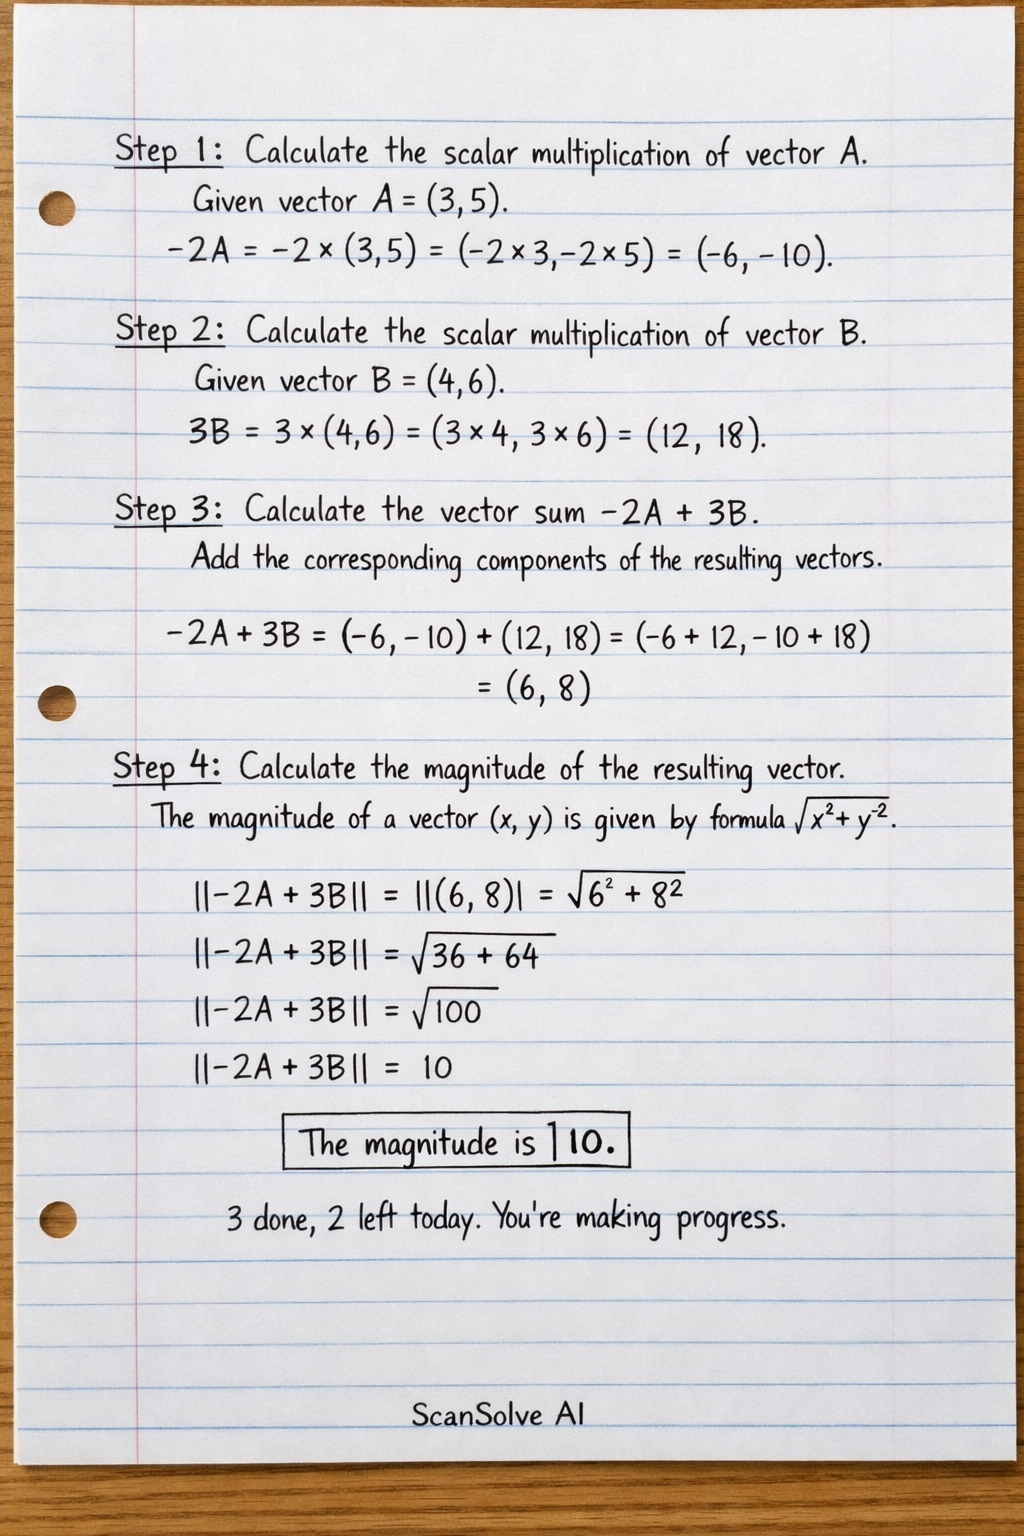 Step 1: Calculate the scalar multiplication of vector A.
Given vector A = (3,5).
-2A = -2 × (3,5) = (-2×3,-2×5) = (-6, -10).
Step 2: Calculate the scalar multiplication of vector B.
Given vector B = (4,6).
3B = 3 × (4,6) = (3 × 4, 3 × 6) = (12, 18).
Step 3: Calculate the vector sum -2A + 3B.
Add the corresponding components of the resulting vectors.
-2A + 3B = (-6, -10) + (12, 18) = (-6 + 12, -10 + 18)
= (6, 8)
Step 4: Calculate the magnitude of the resulting vector.
The magnitude of a vector (x, y) is given by formula √x²+ y⁻².
||-2A + 3B|| = ||(6, 8)| = √6² + 8²
||-2A + 3B|| = √36 + 64
||-2A + 3B|| = √100
||-2A + 3B|| = 10
The magnitude is ] 10.
3 done, 2 left today. You're making progress.
ScanSolve AI